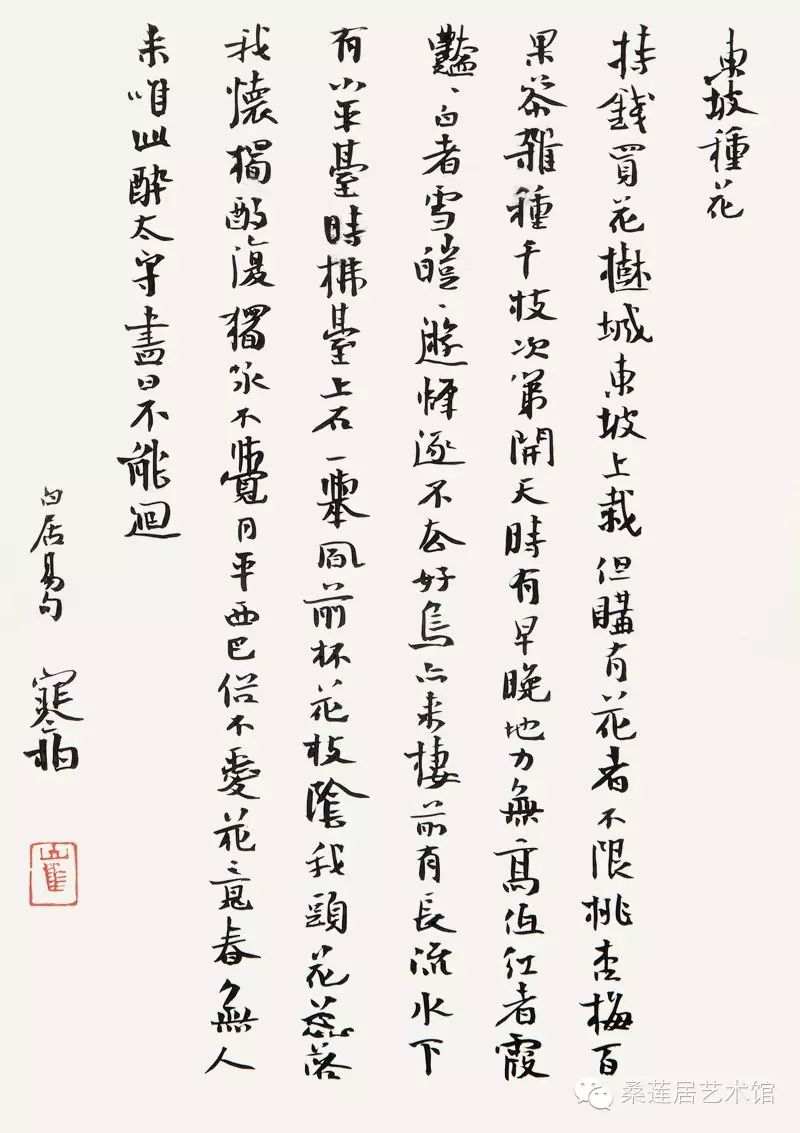 東坡種花
持錢買花樹城東坡上栽但購有花者不限桃杏梅百
果參雜種千枝次第開天時有早晚地力無高低紅者霞
豔、白者雪皚、遊蜂逐不去好鳥亦來棲前有長流水下
有小平臺時拂臺上石一舉風前杯花枝蔭我頭花蕊落
我懷獨酌復獨詠不覺月平西巴俗不愛花竟春無人
來唯此醉太守盡日不能迴
白居易句
桑莲居艺术馆